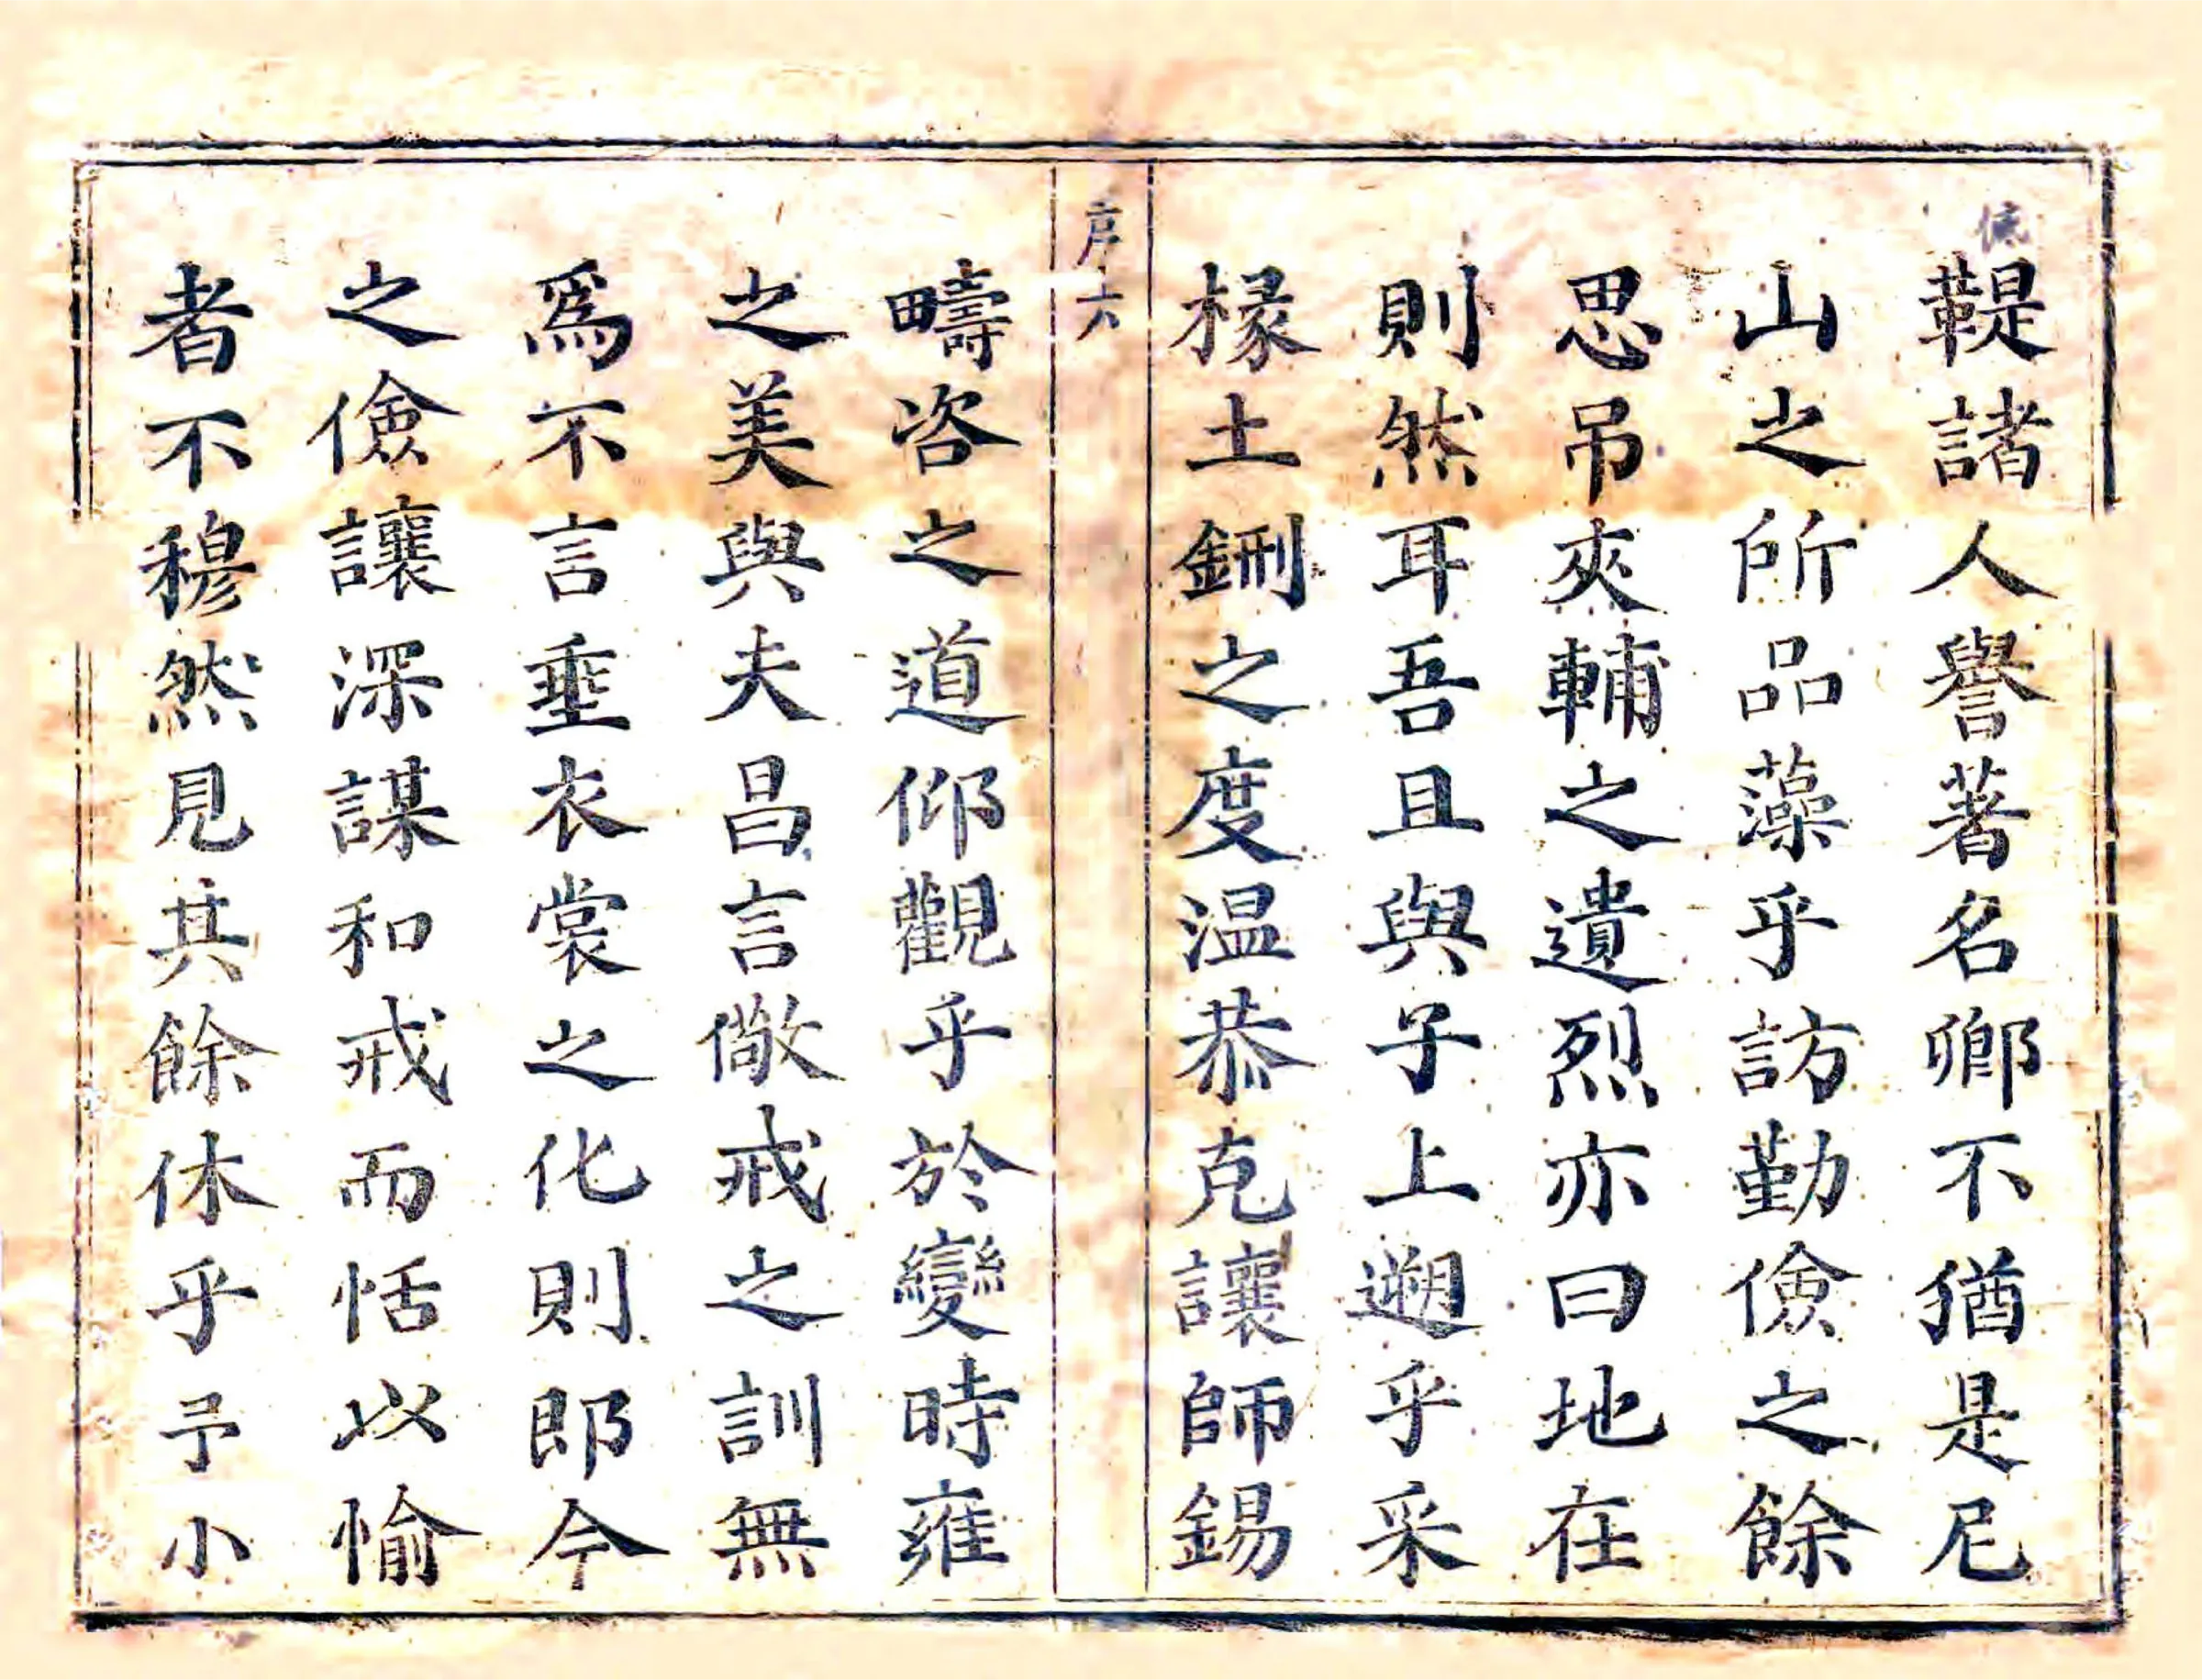 鞮諸人譽著名卿不猶是尼
山之所品藻乎訪勤儉之餘
思吊夾輔之遺烈亦曰地在
則然耳吾且與子上遡乎采
椽土鉶之度温恭克讓師錫
序六
疇咨之道仰觀乎於變時雍
之美與夫昌言儆戒之訓無
爲不言垂衣裳之化則卽今
之儉讓深謀和戒而恬以愉
者不穆然見其餘休乎予小